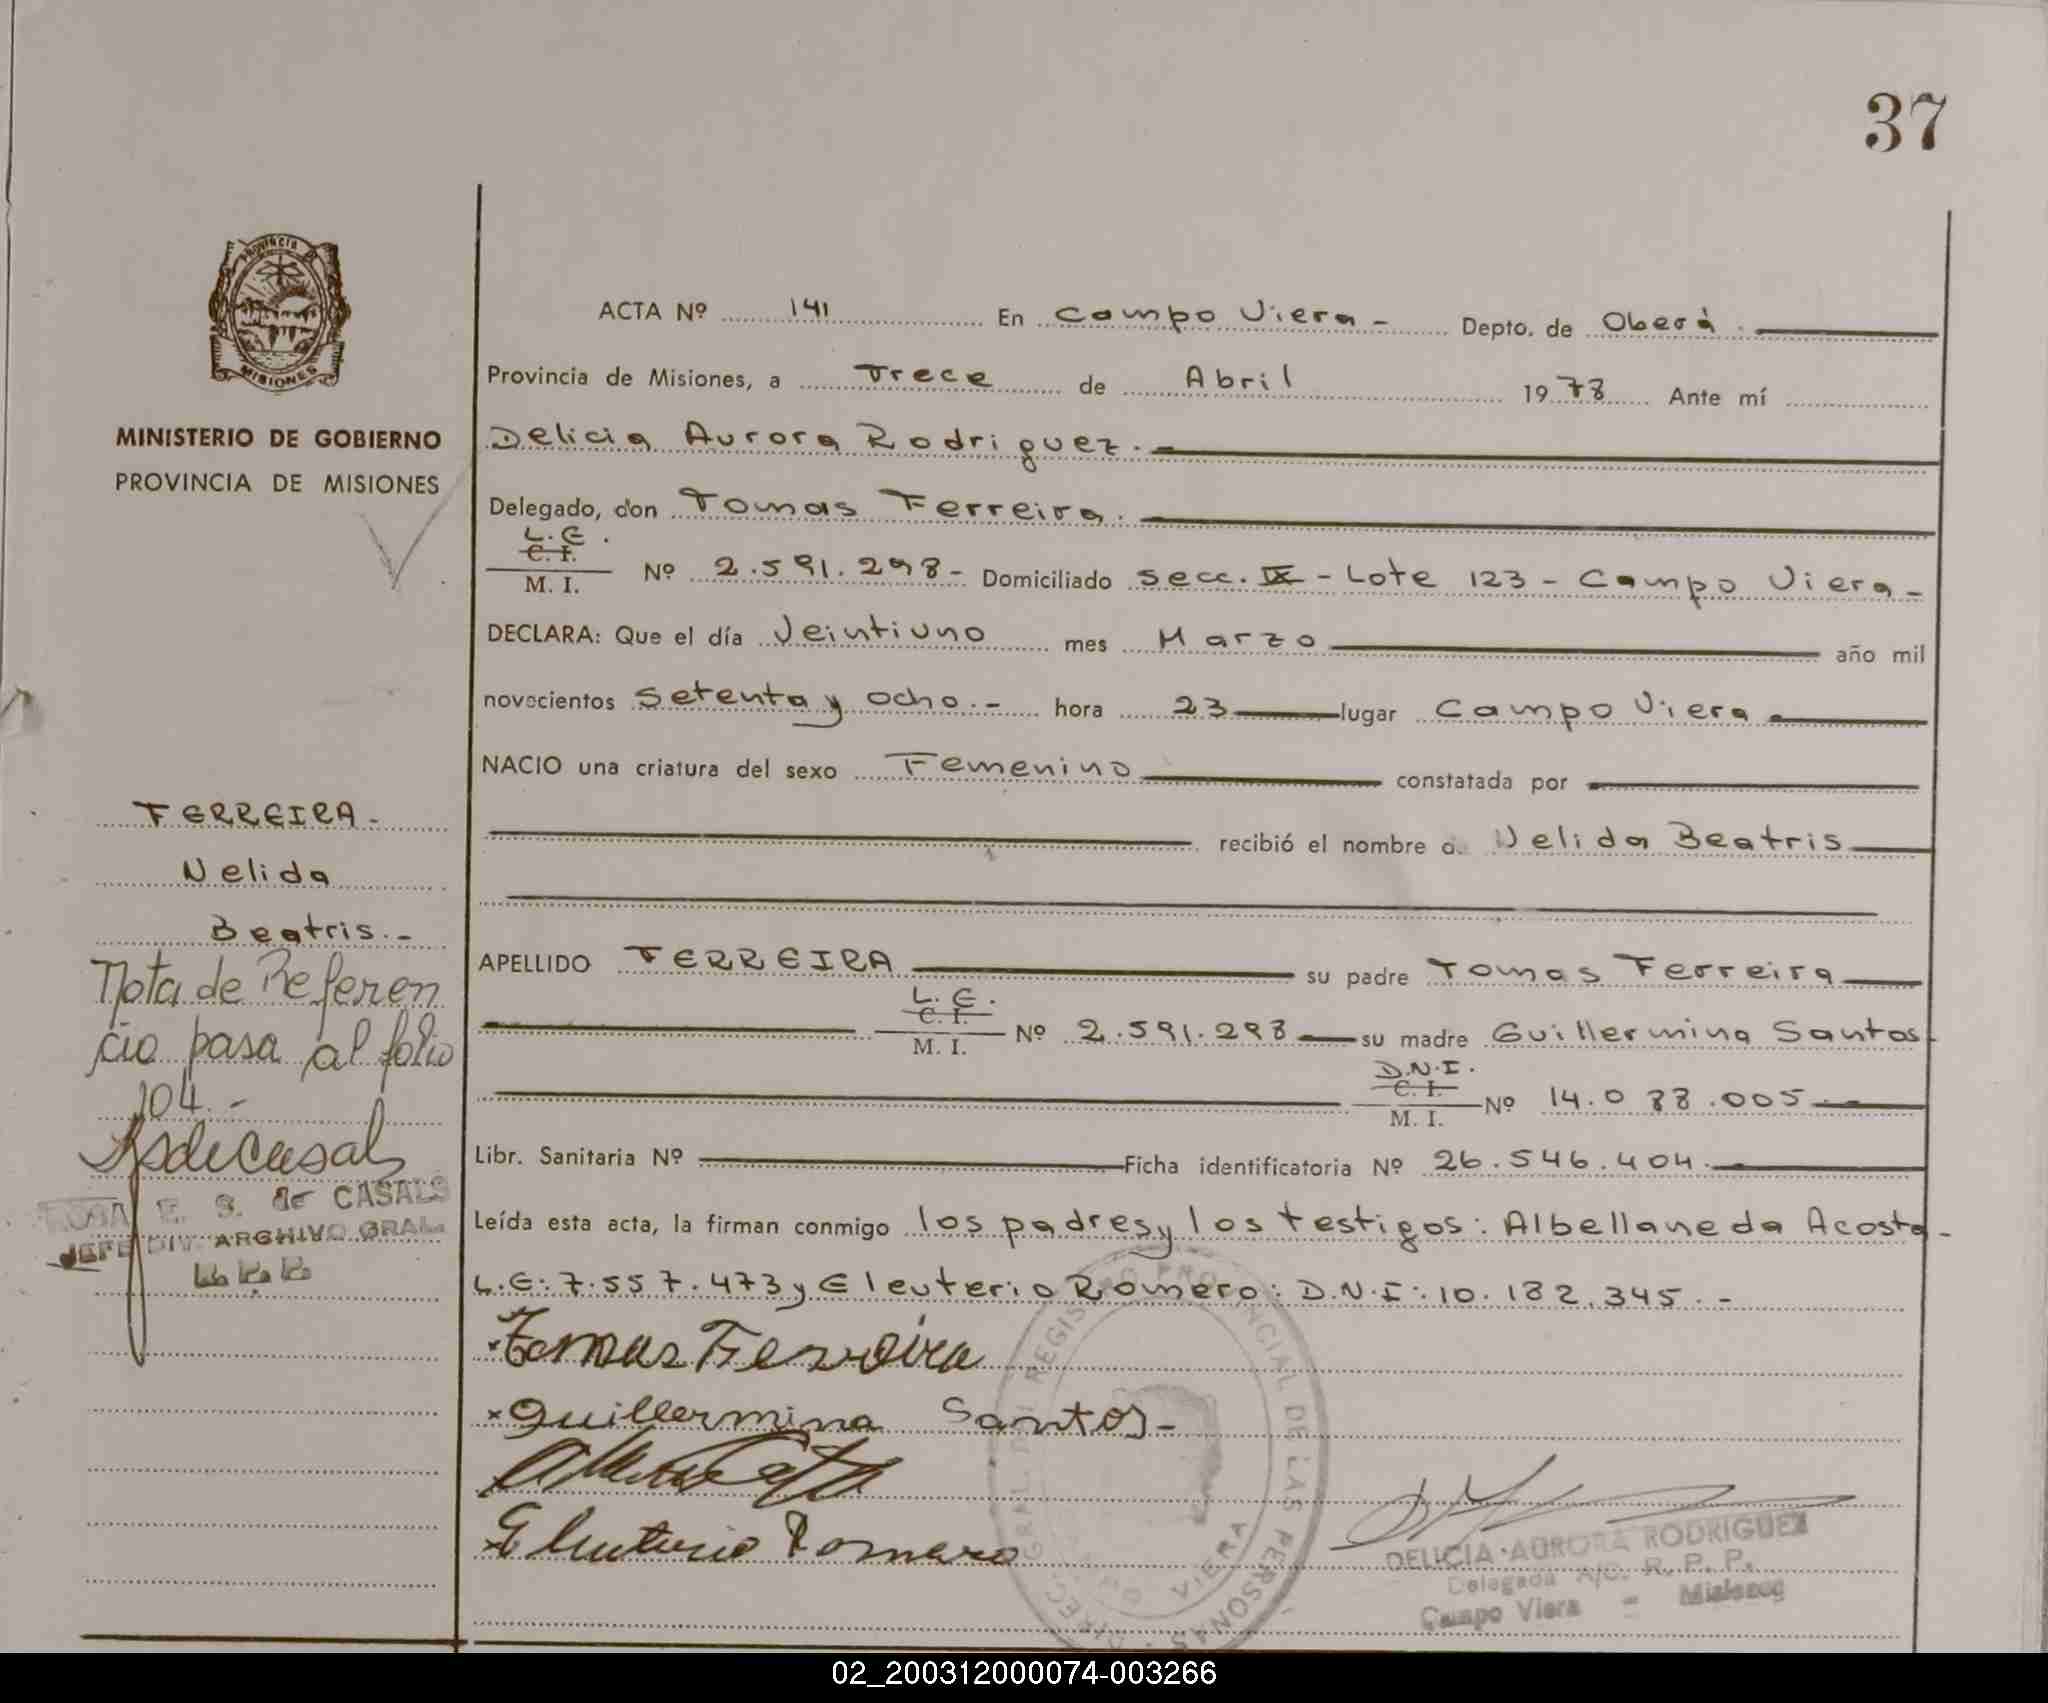 37
PROVINCIA DE
MISIONES
MINISTERIO DE GOBIERNO
PROVINCIA DE MISIONES
FERREIRA.-
Nelida
Beatris.-
Nota de Referen
cia pasa al folio
104.-
ROSA E. S. de CASALS
JEFE DIV. ARCHIVO GRAL.
ACTA Nº 141 En Campo Viera- Depto. de Oberá.
Provincia de Misiones, a Trece de Abril 1978 Ante mí
Delicia Aurora Rodriguez.-
Delegado, don Tomas Ferreira.
L.E.
C. I.
M. I. Nº 2.591.298- Domiciliado Secc. IX - Lote 123 - Campo Viera-
DECLARA: Que el día Veintiuno mes Marzo año mil
novecientos setenta y ocho.- hora 23 lugar Campo Viera
NACIO una criatura del sexo Femenino constatada por
recibió el nombre d Nelida Beatris
APELLIDO FERREIRA su padre Tomas Ferreira
L.E.
C. I.
M. I. Nº 2.591.298 su madre Guillermina Santos
D.N.I.
C. I.
M. I. Nº 14.088.005.-
Libr. Sanitaria Nº Ficha identificatoria Nº 26.546.404.
Leída esta acta, la firman conmigo los padres y los testigos: Albellaneda Acosta-
L.E: 7.557.473 y Eleuterio Romero: D.N.I: 10.182.345.-
Tomas Ferreira
x Guillermina Santos-
Eleuterio Romero
DIREC. GRAL. DEL REGISTRO PROVINCIAL DE LAS PERSONAS
VIERA
DELICIA AURORA RODRIGUEZ
Delegada A/C. R. P. P.
Campo Viera - Misiones
02_200312000074-003266